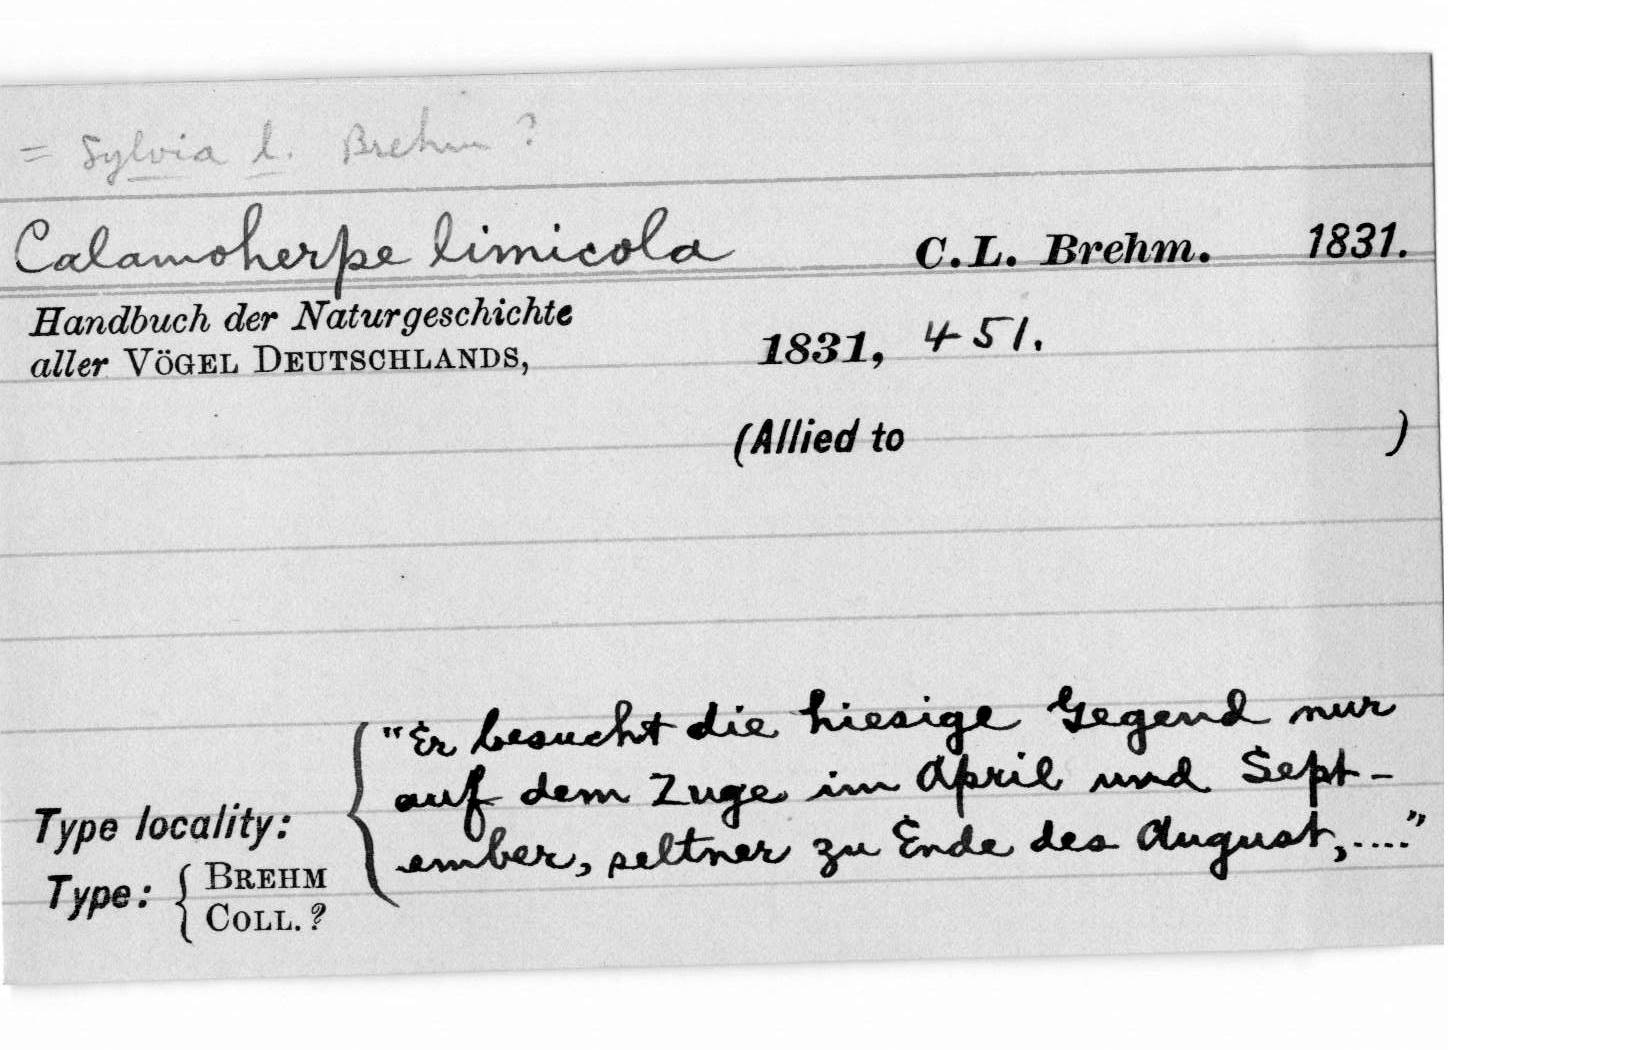 = Sylvia l. Brehm ?
Calamoherpe limicola C.L. Brehm. 1831.
Handbuch der Naturgeschichte
aller VÖGEL DEUTSCHLANDS, 1831, 451.
(Allied to )
"Er besucht die hiesige Gegend nur
auf dem Zuge im April und Sept-
ember, seltner zu Ende des August,...."
Type locality:
Type: { BREHM
COLL. ?